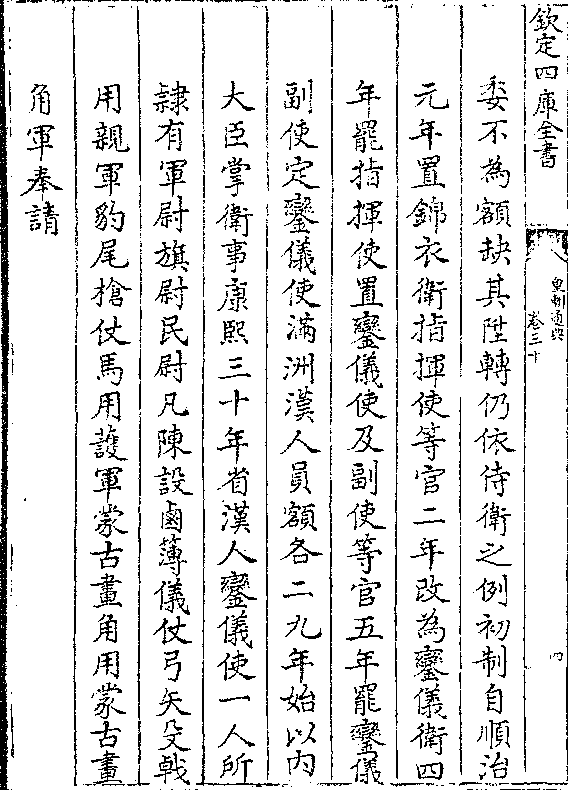 欽定四庫全書
皇朝通典
卷三十
四
委不為額缺其陞轉仍依侍衛之例初制自順治
元年置錦衣衛指揮使等官二年改為鑾儀衛四
年罷指揮使置鑾儀使及副使等官五年罷鑾儀
副使定鑾儀使滿洲漢人員額各二九年始以内
大臣掌衛事康熙三十年省漢人鑾儀使一人所
隷有軍尉旗尉民尉凡陳設鹵薄儀仗弓矢殳戟
用親軍豹尾槍仗馬用護軍蒙古畫角用蒙古畫
角軍奉請